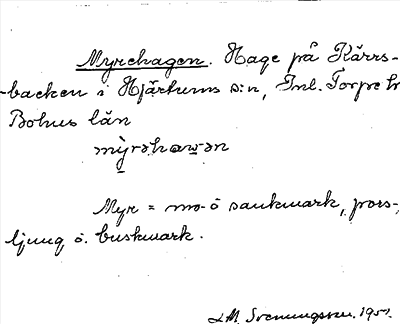 Myrehagen. Hage på Kärrs-
-backen i Hjärtums s:n, Inl. Torpe hr
Bohus län
mỳrəhaɯ̯ən
Myr = mo- o sankmark, pors,
ljung o. buskmark.
J.M. Svenningsson. 1951.